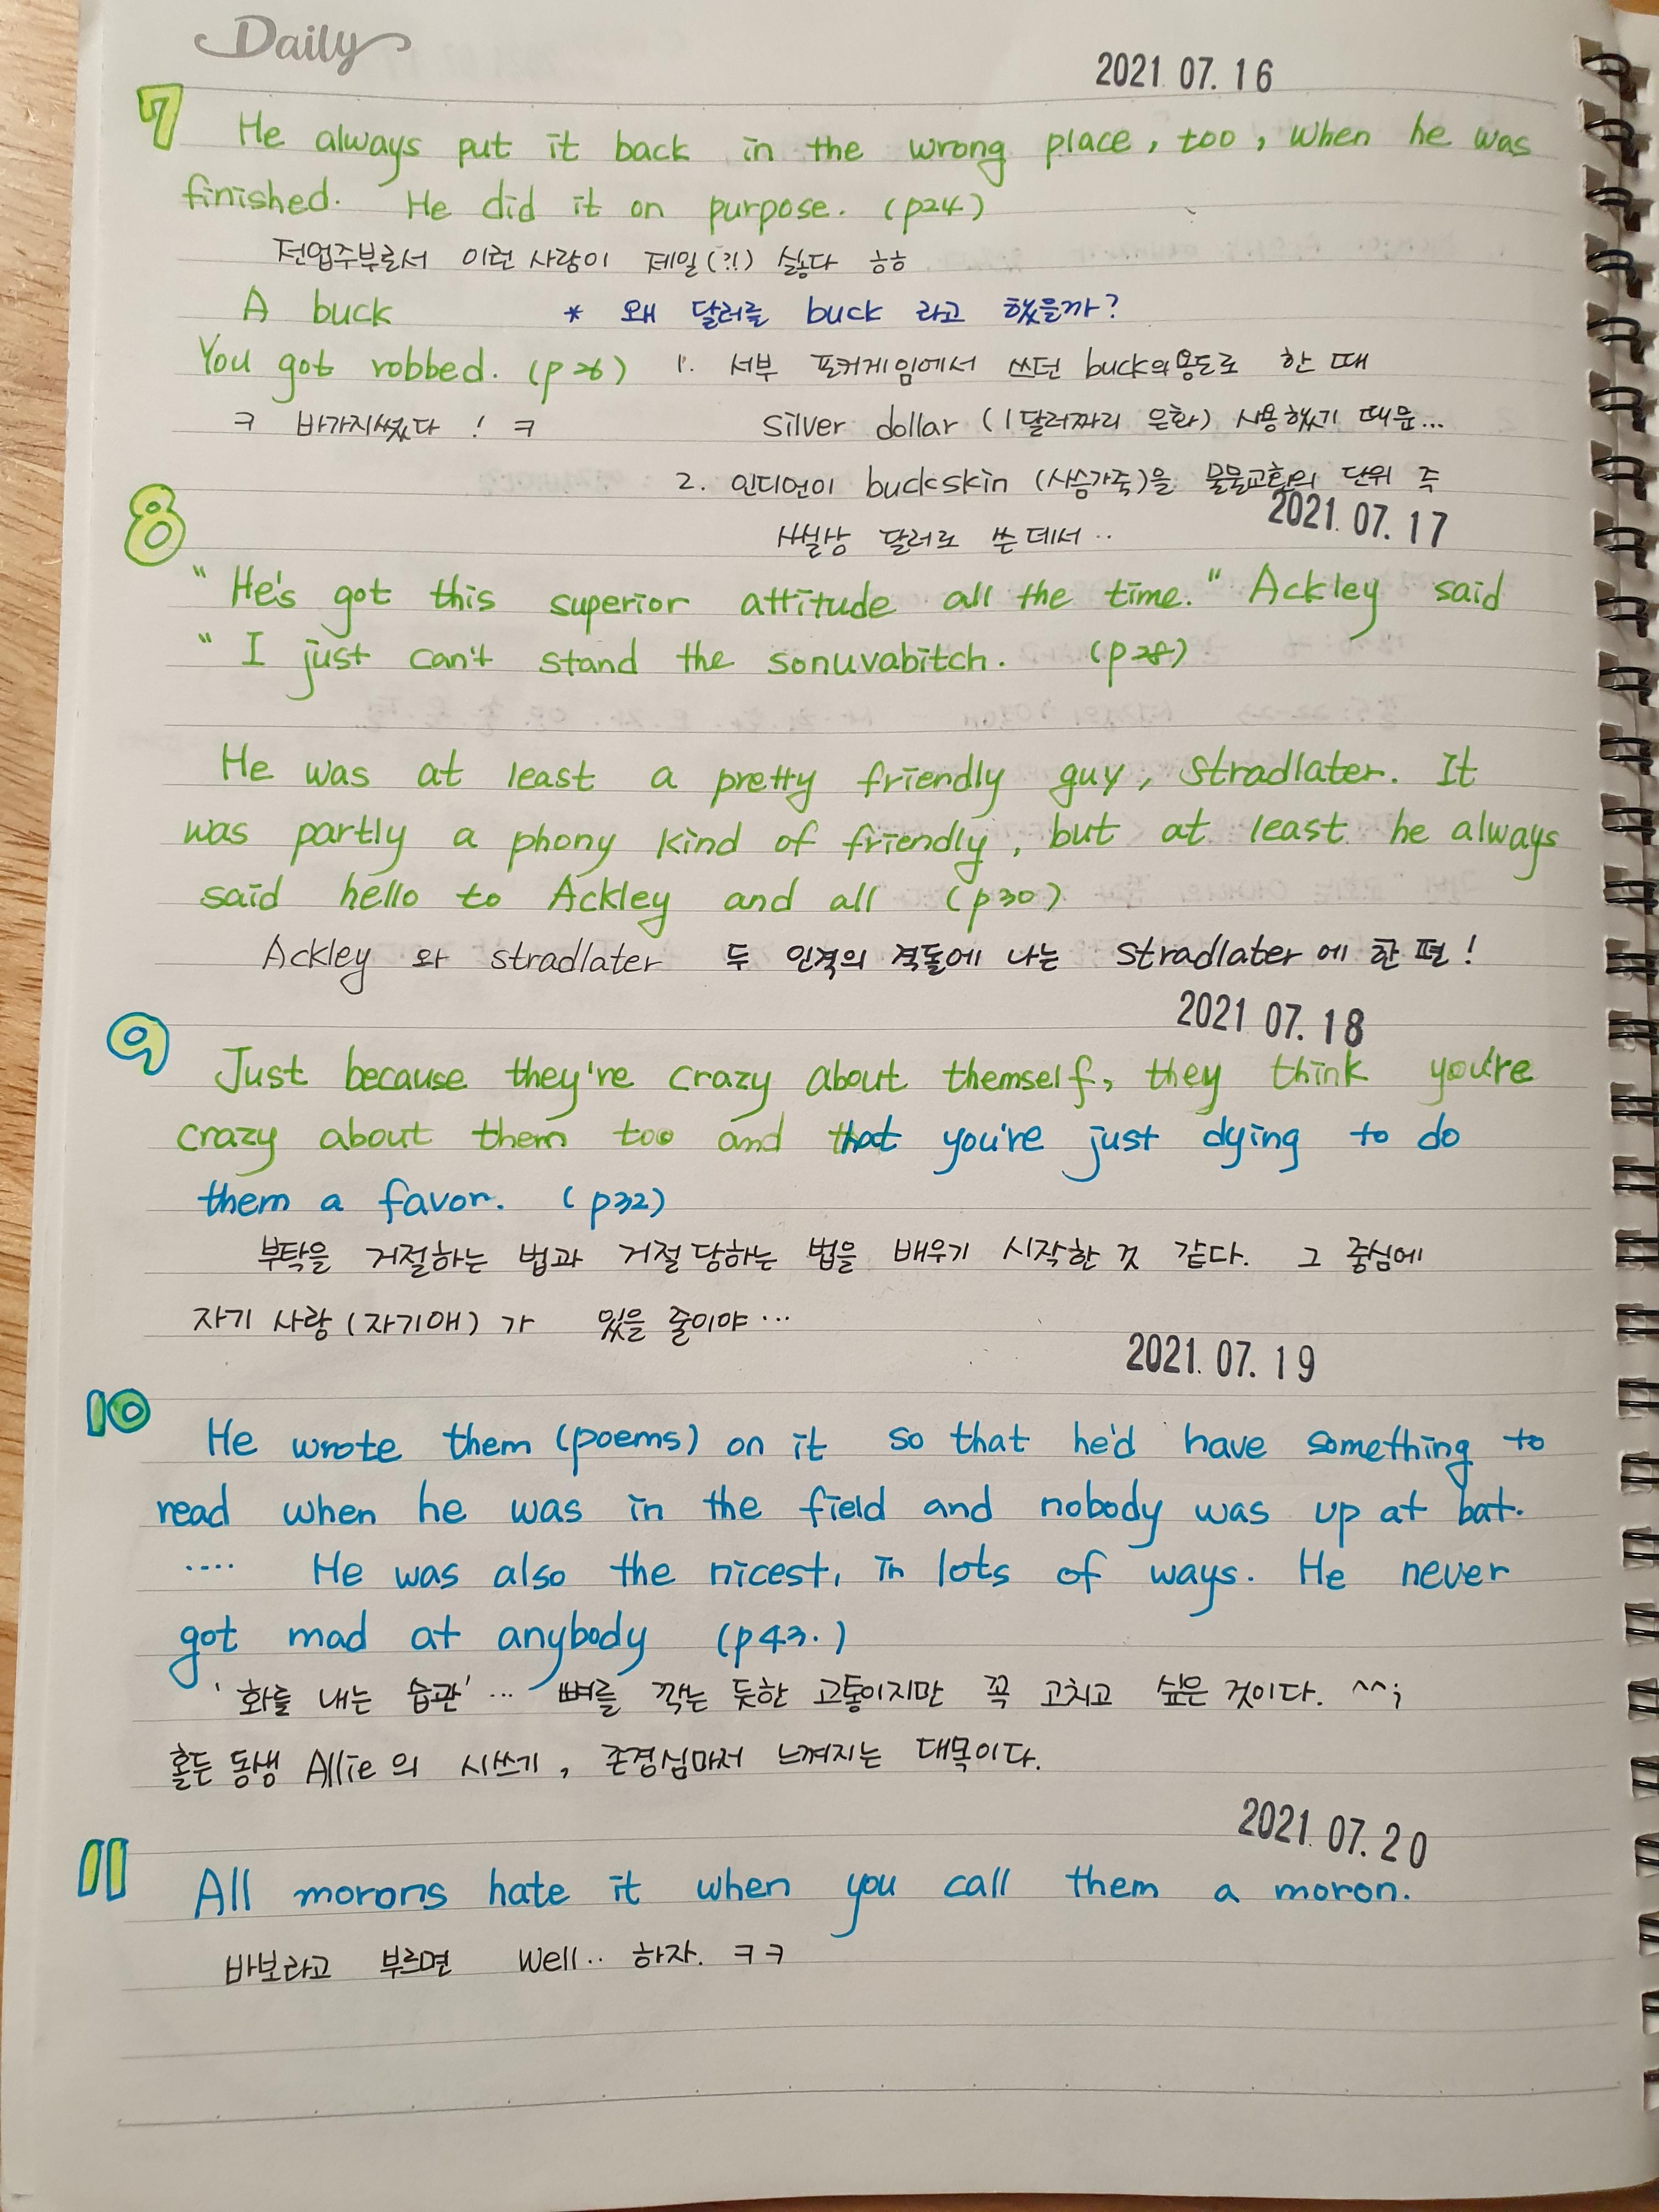 Daily
2021. 07. 16
7 He always put it back in the wrong place, too, when he was
finished. He did it on purpose. (p24)
전업주부로서 이런 사람이 제일(?!) 싫다 ㅎㅎ
A buck * 왜 달러를 buck 라고 했을까?
You got robbed. (p26) 1. 서부 포커게임에서 쓰던 buck의 용도로 한 때
ㅋ 바가지썼다! ㅋ silver dollar (1달러짜리 은화) 사용했기 때문...
2. 인디언이 buckskin (사슴가죽)을 물물교환의 단위 즉
사실상 달러로 쓴데서..
2021. 07. 17
8
"He's got this superior attitude all the time." Ackley said
"I just can't stand the sonuvabitch. (p28)
He was at least a pretty friendly guy, Stradlater. It
was partly a phony kind of friendly, but at least he always
said hello to Ackley and all (p30)
Ackley 와 stradlater 두 인격의 격돌에 나는 stradlater에 한 편!
2021. 07. 18
9 Just because they're crazy about themself, they think you're
crazy about them too and that you're just dying to do
them a favor. (p32)
부탁을 거절하는 법과 거절당하는 법을 배우기 시작한 것 같다. 그 중심에
자기 사랑(자기애)가 있을 줄이야...
2021. 07. 19
10 He wrote them (poems) on it so that he'd have something to
read when he was in the field and nobody was up at bat.
.... He was also the nicest, in lots of ways. He never
got mad at anybody (p43.)
'화를 내는 습관'... 뼈를 깍는 듯한 고통이지만 꼭 고치고 싶은 것이다. ^^;
홀든 동생 Allie의 시쓰기, 존경심마저 느껴지는 대목이다.
2021. 07. 20
11 All morons hate it when you call them a moron.
바보라고 부르면 well.. 하자. ㅋㅋ